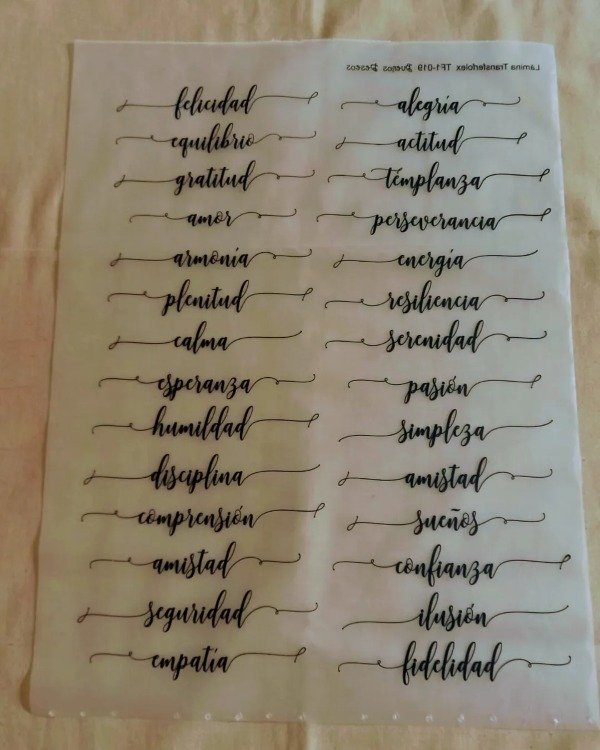 Lámina Transferfolex TF1-019 Buenos Deseos
felicidad
equilibrio
gratitud
amor
armonía
plenitud
calma
esperanza
humildad
disciplina
comprensión
amistad
seguridad
empatía
alegría
actitud
témplanza
perseverancia
energía
resiliencia
serenidad
pasión
simpleza
amistad
sueños
confianza
ilusión
fidelidad